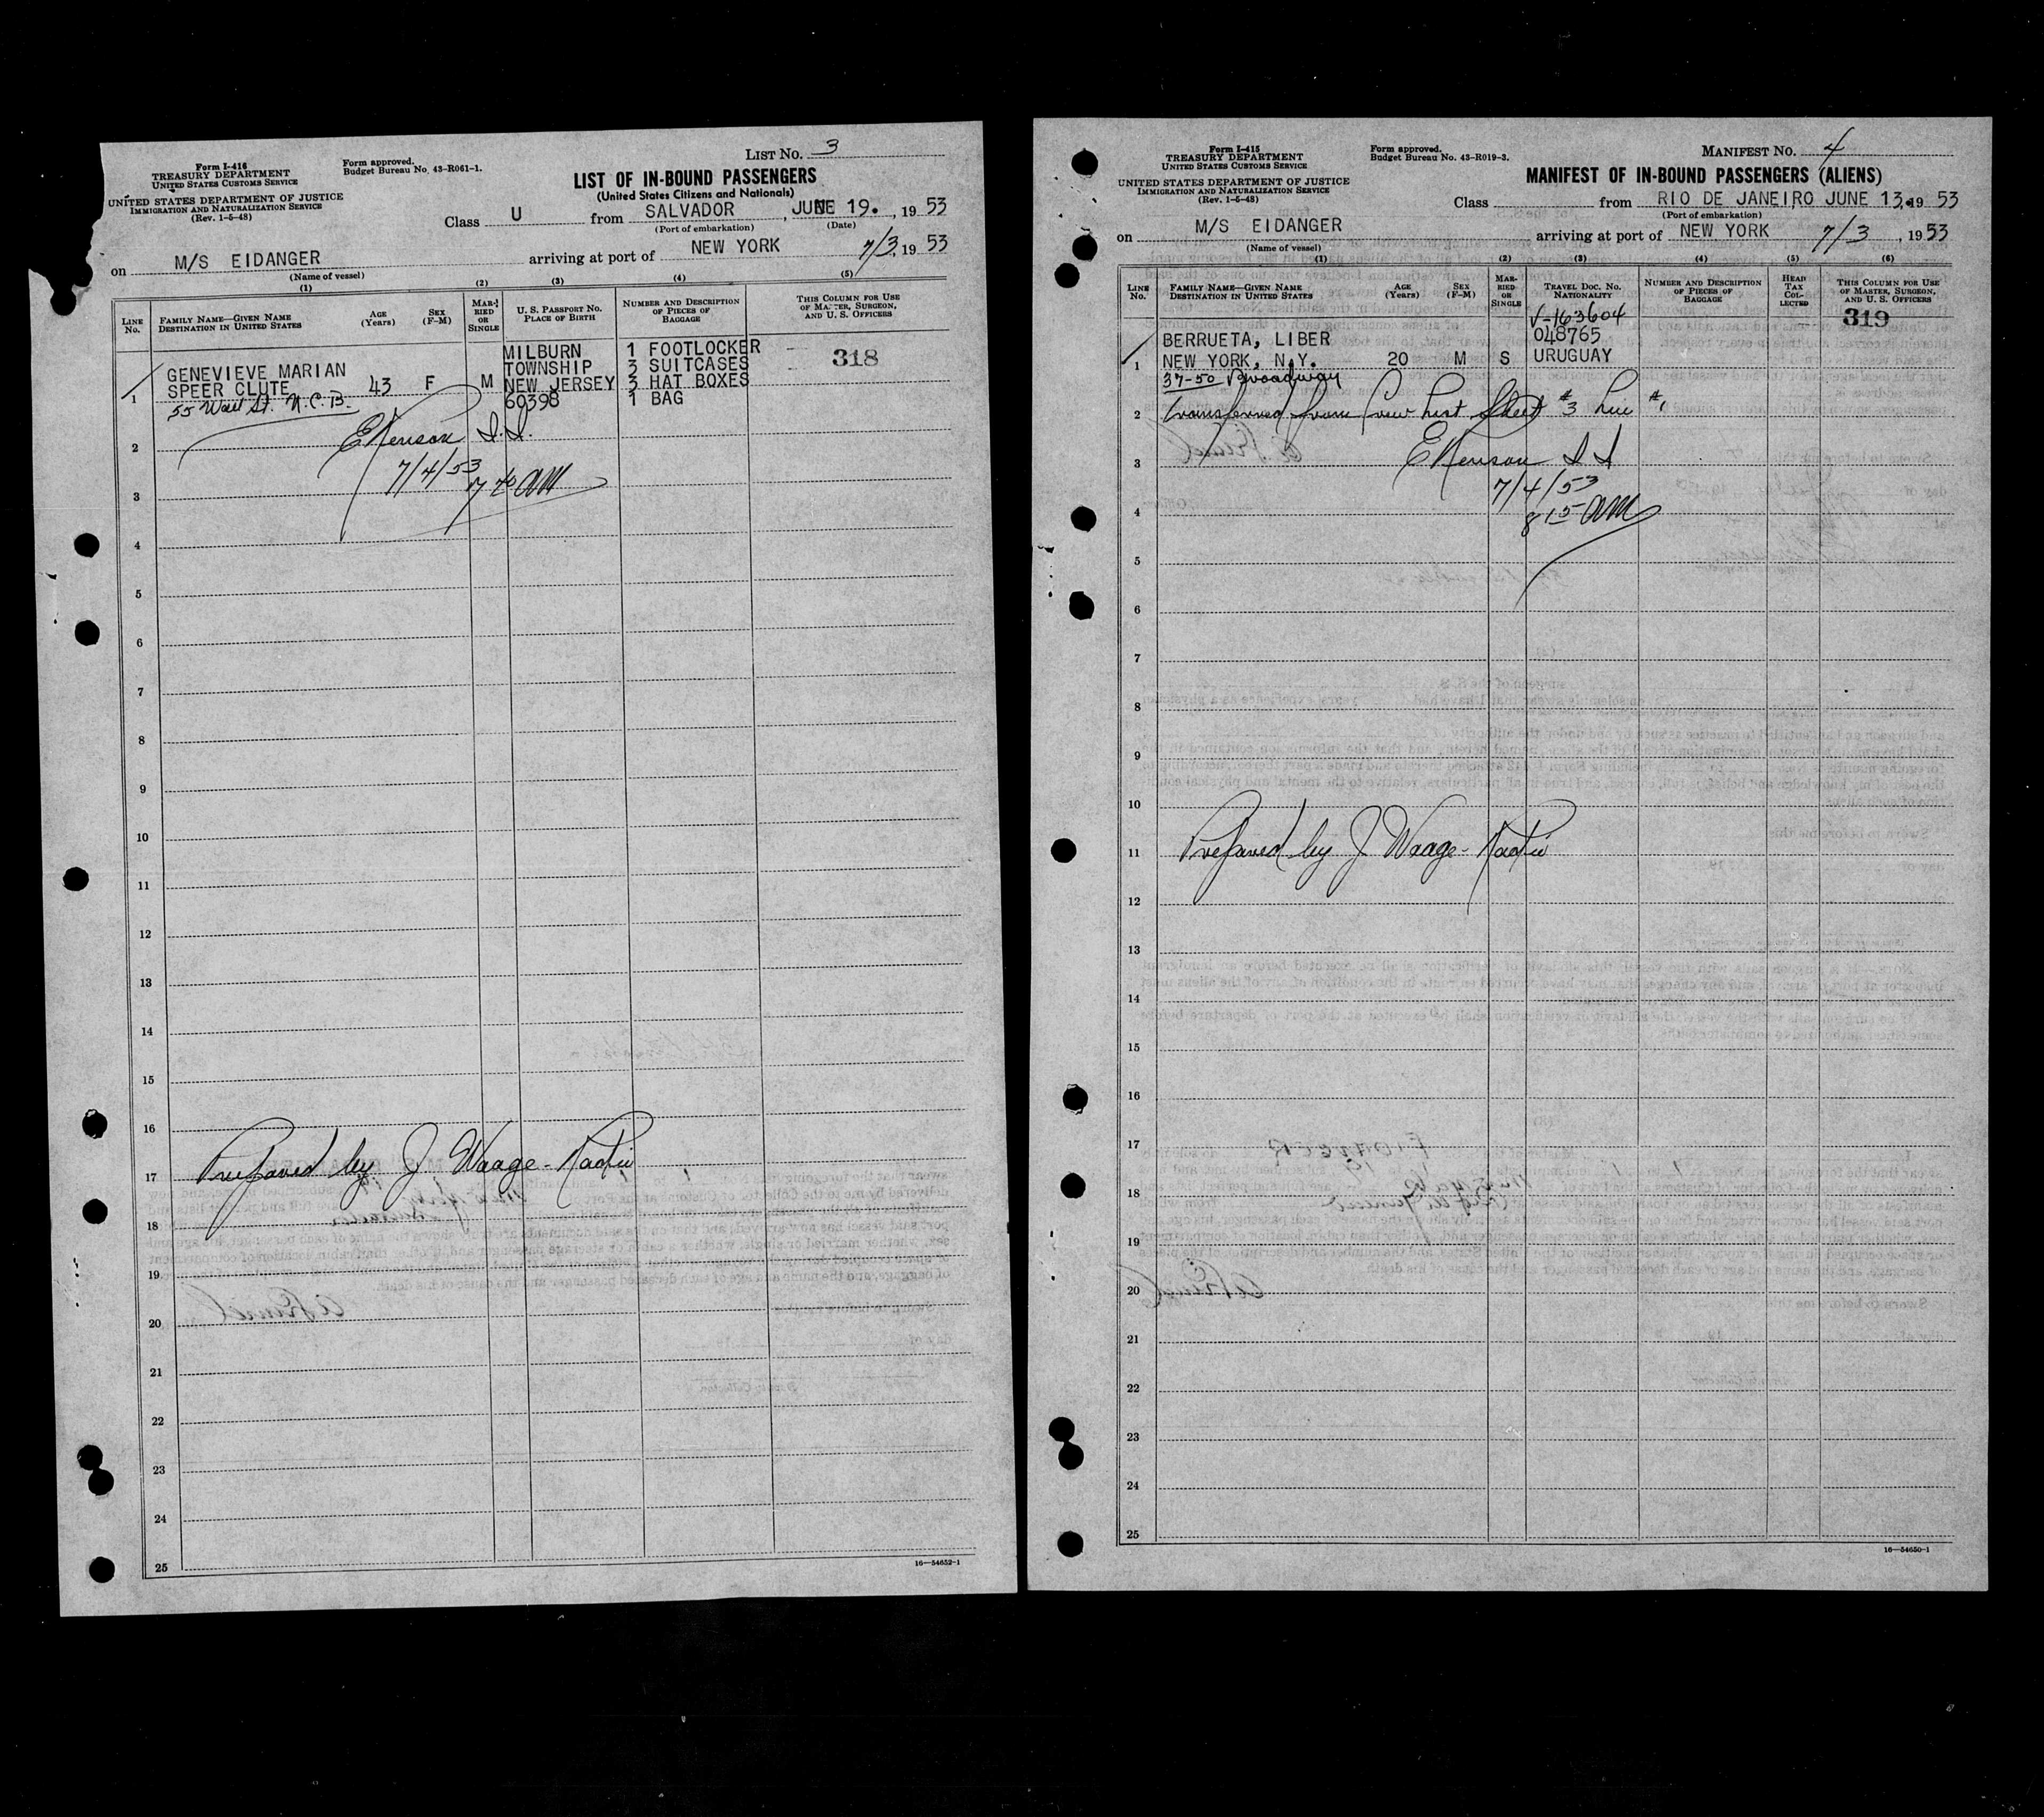 Form I-416
TREASURY DEPARTMENT
UNITED STATES CUSTOMS SERVICE
UNITED STATES DEPARTMENT OF JUSTICE
IMMIGRATION AND NATURALIZATION SERVICE
(Rev. 1-5-48)
Form approved.
Budget Bureau No. 43-R061-1.
LIST NO. 3
LIST OF IN-BOUND PASSENGERS
(United States Citizens and Nationals)
Class U from SALVADOR, JUNE 19., 1953
(Port of embarkation) (Date)
on M/S EIDANGER arriving at port of NEW YORK 7/3, 1953
(Name of vessel)
(1) (2) (3) (4) (5)
LINE NO.
FAMILY NAME—GIVEN NAME
DESTINATION IN UNITED STATES
AGE (Years)
SEX (F-M)
MARRIED OR SINGLE
U. S. PASSPORT NO.
PLACE OF BIRTH
NUMBER AND DESCRIPTION OF PIECES OF BAGGAGE
THIS COLUMN FOR USE OF MASTER, SURGEON, AND U. S. OFFICERS
318
1 GENEVIEVE MARIAN
SPEER CLUTE 43 F M
55 Wall St. N.C.B.
MILBURN
TOWNSHIP
NEW JERSEY
60398
1 FOOTLOCKER
3 SUITCASES
3 HAT BOXES
1 BAG
2
EKenson I.I.
7/4/53
3
7 40 AM
4
5
6
7
8
9
10
11
12
13
14
15
16
17 Prepared by J Waage - Radio
18
19
20
21
22
23
24
25
16—54652-1
Form I-415
TREASURY DEPARTMENT
UNITED STATES CUSTOMS SERVICE
UNITED STATES DEPARTMENT OF JUSTICE
IMMIGRATION AND NATURALIZATION SERVICE
(Rev. 1-5-48)
Form approved.
Budget Bureau No. 43-R019-3.
MANIFEST NO. 4
MANIFEST OF IN-BOUND PASSENGERS (ALIENS)
Class from RIO DE JANEIRO JUNE 13., 1953
(Port of embarkation)
on M/S EIDANGER arriving at port of NEW YORK 7/3, 1953
(Name of vessel)
(1) (2) (3) (4) (5) (6)
LINE NO.
FAMILY NAME—GIVEN NAME
DESTINATION IN UNITED STATES
AGE (Years)
SEX (F-M)
MARRIED OR SINGLE
TRAVEL DOC. NO.
NATIONALITY
NUMBER AND DESCRIPTION OF PIECES OF BAGGAGE
HEAD TAX COLLECTED
THIS COLUMN FOR USE OF MASTER, SURGEON, AND U. S. OFFICERS
319
V-163604
048765
URUGUAY
1 BERRUETA, LIBER
NEW YORK, N.Y. 20 M S
37-50 Broadway
2 transferred from Crew List Sheet #3 Line #1
3 EKenson I I
7/4/53
4 8 15 AM
5
6
7
8
9
10
11 Prepared by J Waage - Radio
12
13
14
15
16
17
18
19
20
21
22
23
24
25
16—54650-1